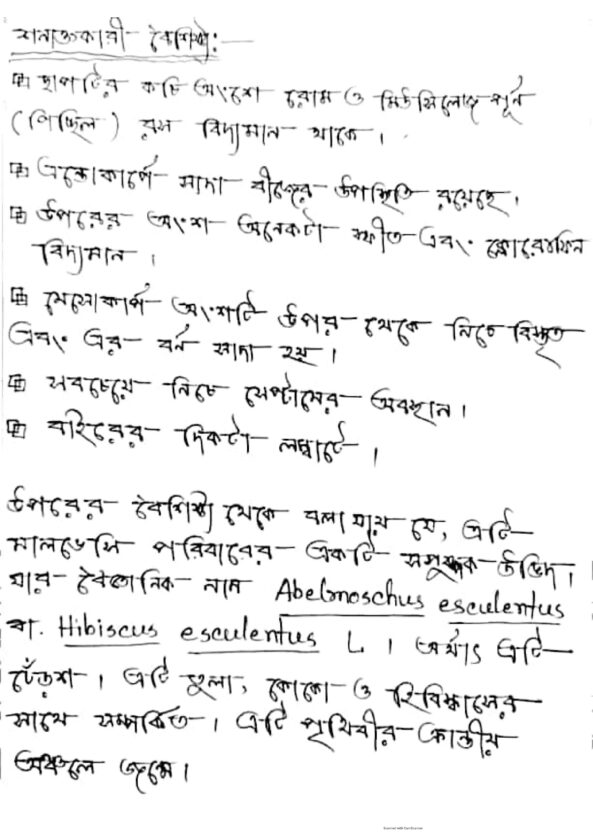 শনাক্তকারী বৈশিষ্ট্য:—
ছাপটির কচি অংশে রোম ও মিউসিলেজ পূর্ন
(পিচ্ছিল) রস বিদ্যমান থাকে।
এন্ডোকার্পে সাদা বীজের উপস্থিতি রয়েছে।
উপরের অংশ অনেকটা স্ফীত এবং ক্লোরোফিল
বিদ্যমান।
মেসোকার্প অংশটি উপর থেকে নিচে বিস্তৃত
এবং এর বর্ন সাদা হয়।
সবচেয়ে নিচে সেপ্টামের অবস্থান।
বাইরের দিকটা লম্বাটে।
উপরের বৈশিষ্ট্য থেকে বলা যায় যে, এটি
মালভেসি পরিবারের একটি সপুষ্পক উদ্ভিদ।
যার বৈজ্ঞানিক নাম Abelmoschus esculentus
বা. Hibiscus esculentus L । অর্থাৎ এটি
ঢেঁড়শ। এটি তুলা, কোকো ও হিবিস্কাসের
সাথে সম্পর্কিত। এটি পৃথিবীর ক্রান্তীয়
অঞ্চলে জন্মে।